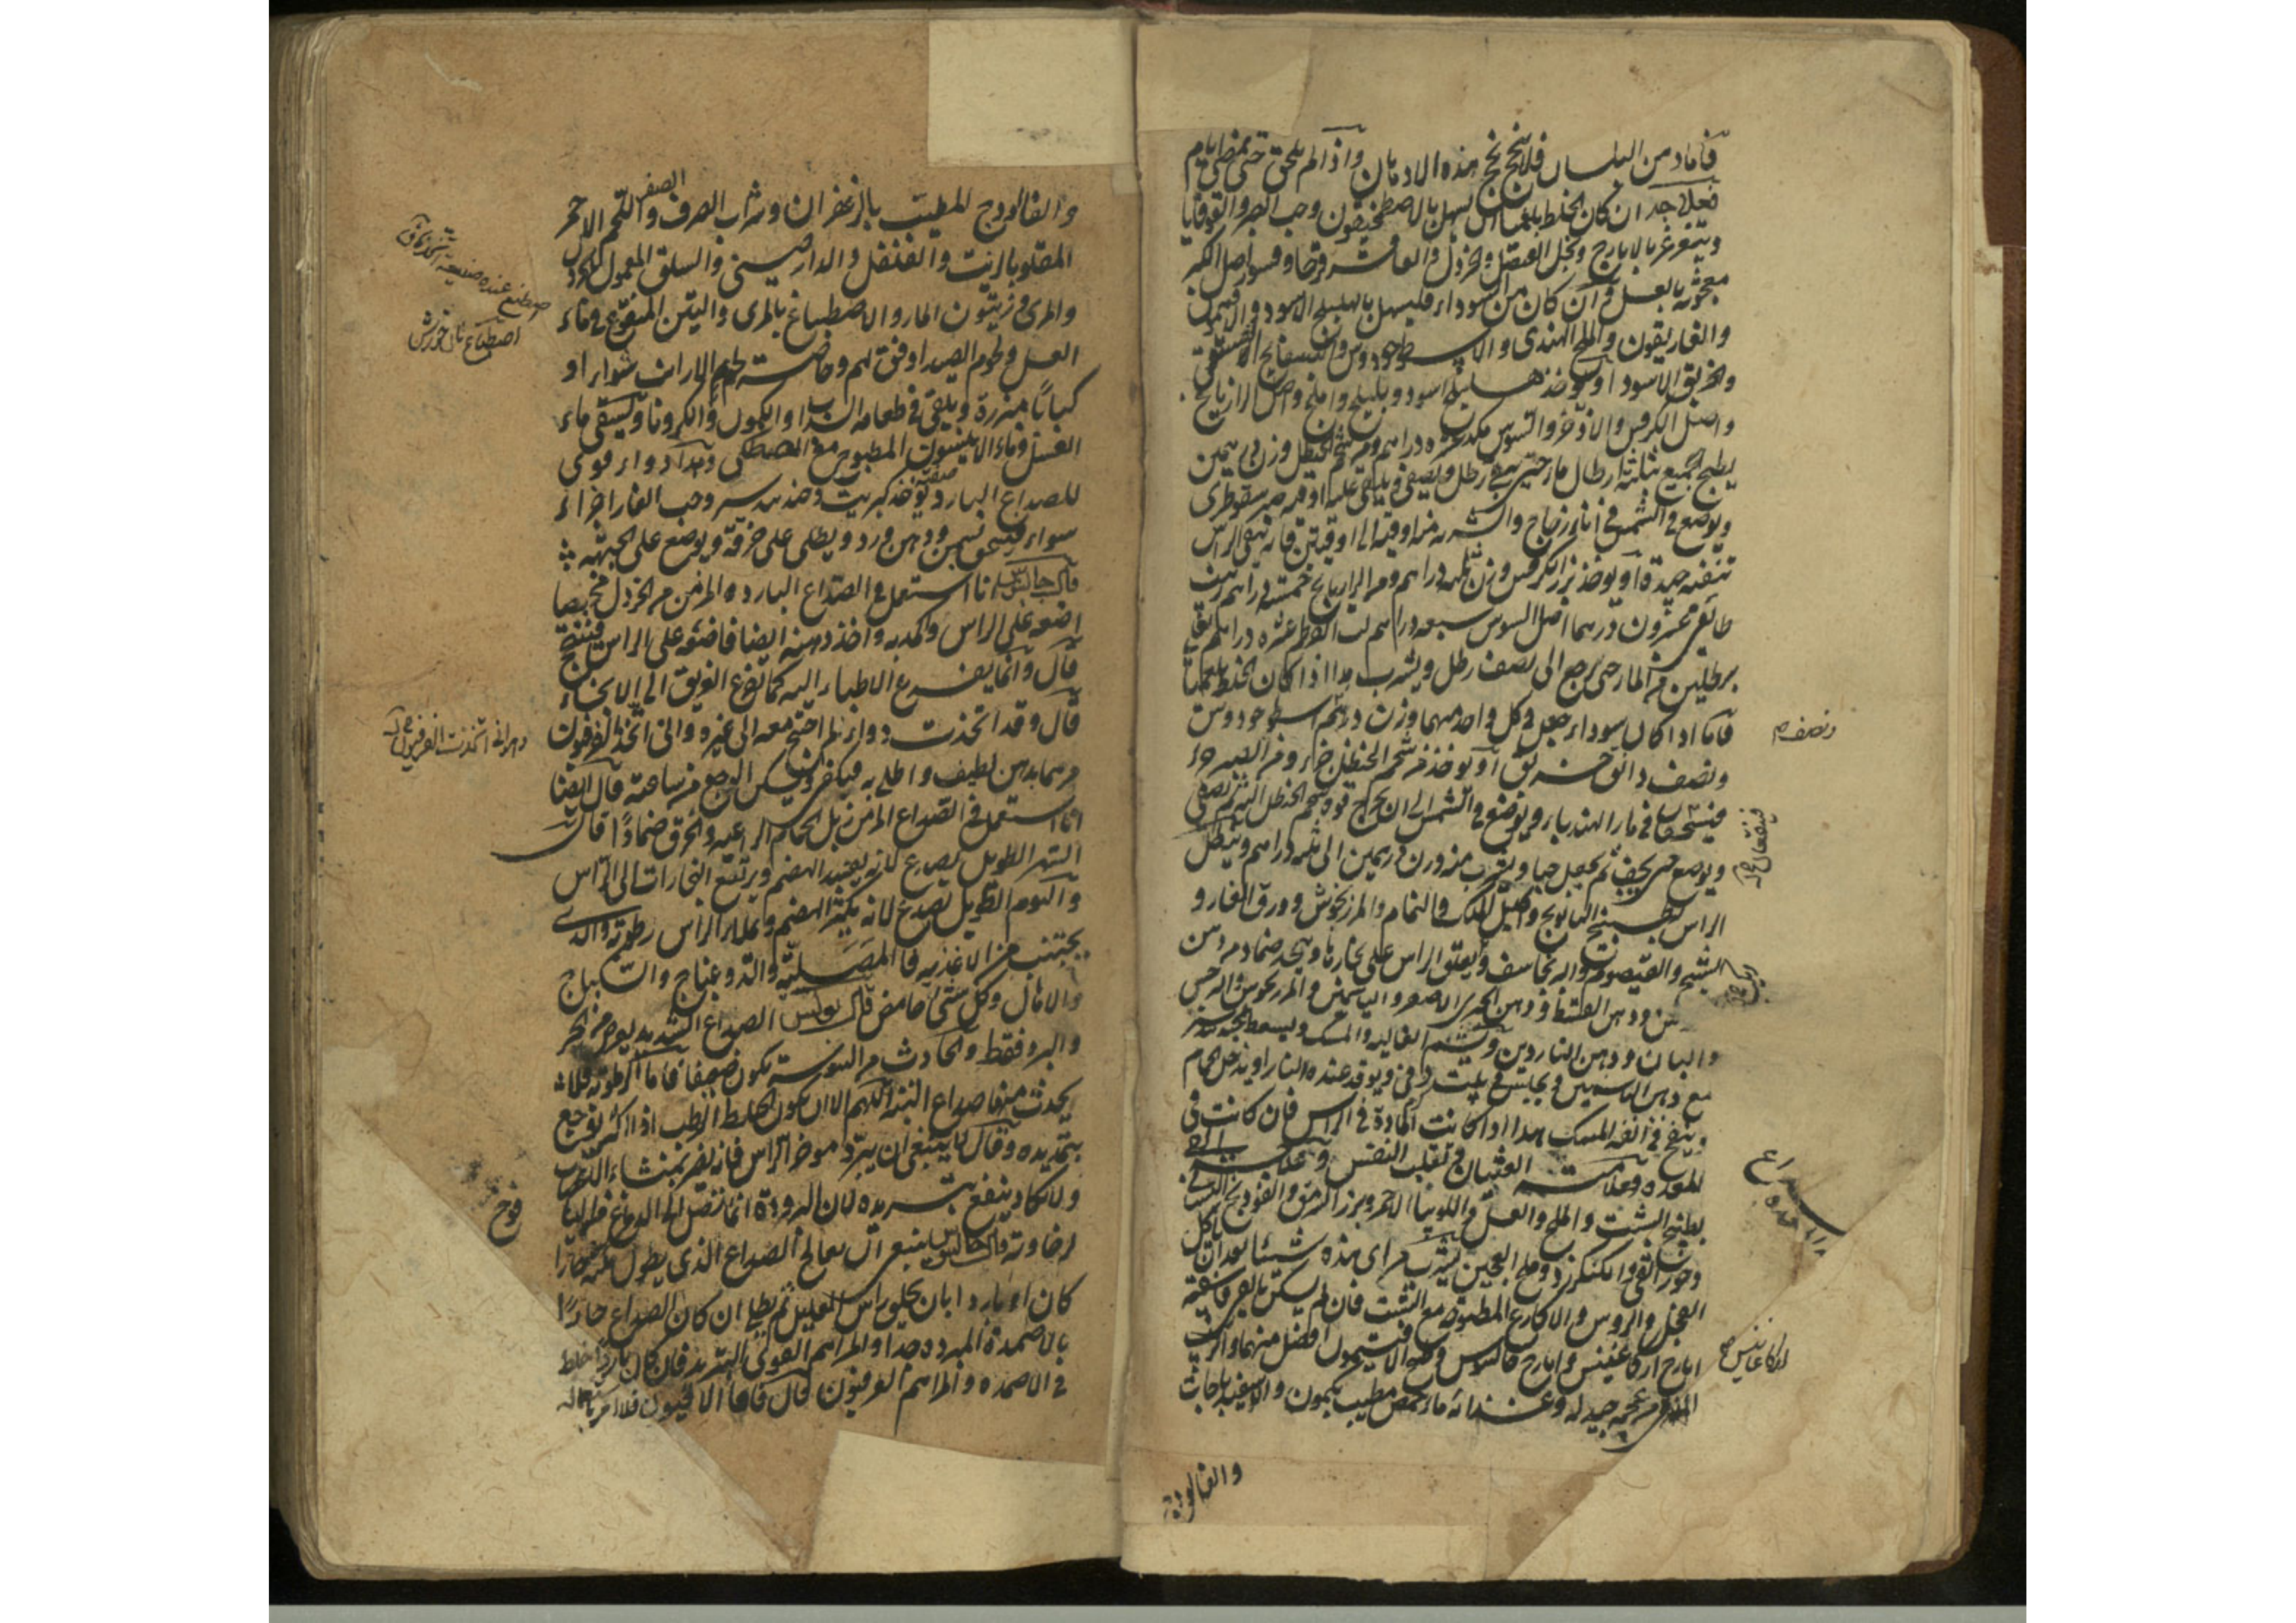 فأما دهن البلسان فلا ينجح نجح هذه الادهان واذا لم يلحق حتى تمضي ايام
فعلاجه ان كان الخلط بلغميا ان يسهل بالاصطمخيقون وحب الصبر والقوقايا
ويتغرغر بالايارج وبخل العنصل والخردل والعاقرقرحا وقشور اصل الكبر
معجونة بالعسل وان كان من السوداء فليسهل بالهليلج الاسود والافتيمون
والغاريقون والملح الهندي والاسطوخودوس والبسفايج الفستقي
والخربق الاسود او يؤخذ هليلج اسود وبليلج واملج واصل الرازيانج
واصل الكرفس والاذخر والسوس مكد عشرة دراهم ومن شحم الحنظل وزن درهمين
يطبخ الجميع بثلثة ارطال ماء حتى يبقى رطل ويصفى ويلقى عليه اوقية صبر سقوطري
ويوضع في الشمس في اناء زجاج والشربة منه اوقية الى اوقيتين فانه ينقي الراس
تنقية جيدة او يؤخذ بزر الكرفس وزن ثلثة دراهم ومن الرازيانج خمسة دراهم زبيب
طائفي عشرون درهما اصل السوس سبعة دراهم لب القرطم عشرة دراهم يغلى
برطلين من الماء حتى يرجع الى نصف رطل ويشرب هذا اذا كان الخلط بلغميا
فاما اذا كان سوداء جعل في كل واحد منهما وزن درهم اسطوخودوس
ونصف دانق خربق او يؤخذ من شحم الحنظل جزء ومن الصبر جزء
فيسحقان في ماء الهندباء ويوضع في الشمس الى ان يخرج قوة شحم الحنظل ثم يصفى
ويوضع حتى يجف ثم يجعل حبا ويشرب منه وزن درهمين الى ثلثة دراهم وينطل
الراس بطبيخ البابونج واكليل الملك والنمام والمرزنجوش وورق الغار و
الشيح والقيصوم والبرنجاسف ويعلق الراس على بخارها ويتخذ ضماد من دهن
ودهن القسط ودهن الخيري الاصفر والياسمين والمرزنجوش والنرجس
والبان ودهن الناردين ويشم الغالية والمسك ويسعط بجندبيدستر
مع دهن الياسمين ويجلس في بيت دفئ ويوقد عنده النار او يدخل الحمام
وينفخ في انفه المسك هذا اذا كانت المادة في الراس فان كانت في
المعدة وعلامته الغثيان وتقلب النفس وعلاجه القئ
بطبيخ الشبت والملح والعسل واللوبيا الاحمر وبزر السرمق والفودنج
وجوز القئ والكنكرزد وملح العجين يشرب من اي هذه شيئا بعد ان ياكل
الفجل والروس والاكارع المطبوخة مع الشبت فان لم يسكن بالقئ فاسقه
ايارج اركاغانيس وايارج جالينوس وحب الافتيمون افضل منهما والزبيب
المنقى من عجمه جيد له وغذائه ماء حمص مطيب بكمون والاسفيدباجات
والفالودج
ونصف م
فيسحقان
اركاغانيس
والفالودج المطيب بالزعفران وشراب الصرف واللحم الاحمر
المقلو بالزيت والفلفل والدارصيني والسلق المعمول بالخردل
والمري وزيتون الماء والاصطباغ بالمري والتين المنقوع في ماء
العسل ولحوم الصيد اوفق لهم وخاصة لحم الارانب شواء او
كبابا مبزرة ويلقى في طعامه السداب والكمون والكرويا ويسقى ماء
العسل وماء الانيسون المطبوخ مع المصطكى وهذا دواء قوي
للصداع البارد يؤخذ كبريت وجندبيدستر وحب الغار اجزاء
سواء فيسحق بسمن ودهن ورد ويطلى على خرقة ويوضع على الجبهة
قال جالينوس انا استعمل في الصداع البارد والمزمن من الخردل مخبيصا
اضعه على الراس واكمد به واخذ دهنه ايضا فاضعه على الراس فينجح
قال وانما يفزع الاطباء اليه كما يفزع الغريق الى الالتجاء
قال وقد اتخذت دواء لم احتج معه الى غيره واني اتخذ الفربيون
مرهما بدهن لطيف واطلي به فيسخن ويسكن الوجع من ساعته قال ايضا
انا استعمل في الصداع المزمن زبل الحمام الراعية والحرف ضمادا قال
السهر الطويل يصدع لانه يفسد الهضم ويرتفع البخارات الى الراس
والنوم الطويل يصدع لانه يكثر الهضم ويملاء الراس رطوبة والذي
يجتنب من الاغذية فالمصلية والدوغباج والسكباج
والالبان وكل شئ حامض قال بولس الصداع الشديد يعرض من الحر
والبرد فقط والحادث من اليبوسة يكون ضعيفا فاما الرطوبة فلا
يحدث منها صداع البتة اللهم الا ان يكون الخلط الرطب اذا اكثر اوجع
بتمديده وقال لا ينبغي ان يبرد مؤخر الراس فانه يضر بمنشاء العصب
ولا يكاد ينفع تبريده لان البرودة انما تصل الى الدماغ
لرخاوته قال جالينوس ينبغي ان يعالج الصداع الذي يطول مكثه حارا
كان او باردا بان يحلق راس العليل ثم يطلى ان كان الصداع حارا
بالاضمدة المبردة جدا والمراهم القوي التبريد فان كان باردا خلط
في الاضمدة والمراهم الفربيون قال فاما الافيون فلا امر باستعماله
اصطنع عنده صنيعة اتخذها ق
اصطباغ نان خورش